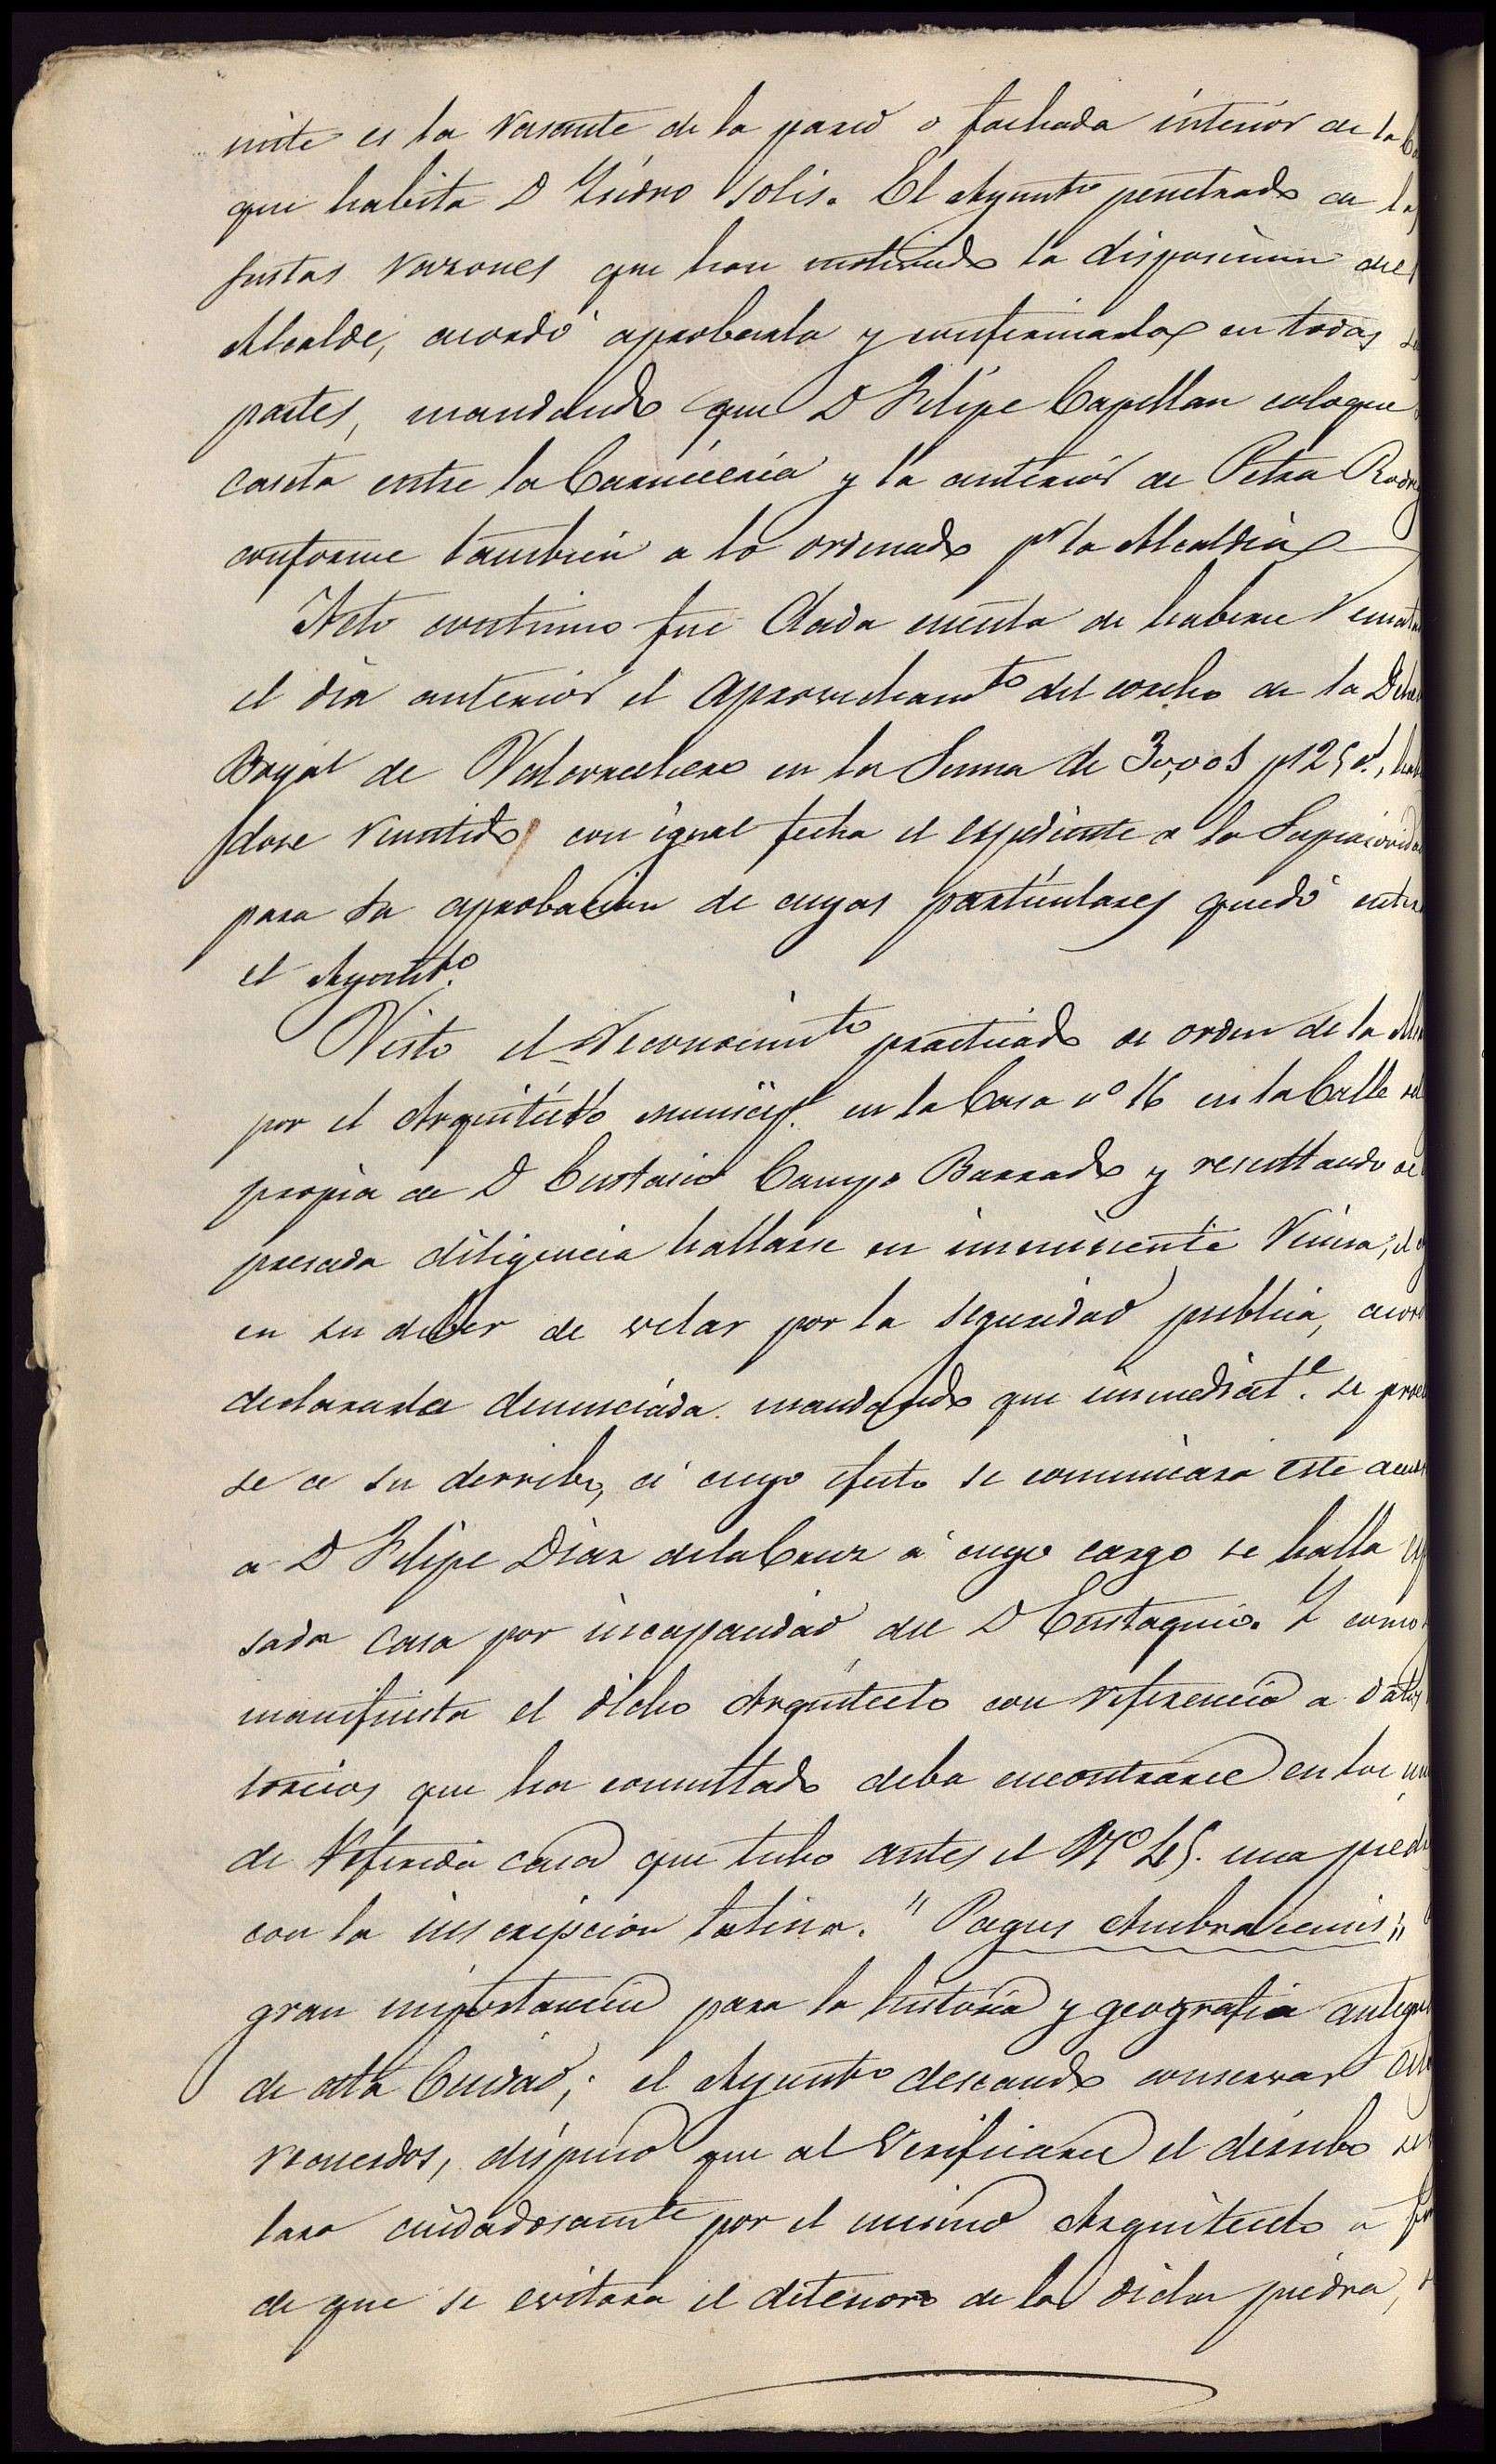 mite es la rasante de la pared o fachada interior de la Ca
que habita D Ysidro Solis. El Ayuntº penetrado de las
justas razones que han motivado la disposicion del
Alcalde, acordó aprobarla y confirmarla en todas su
partes, mandando que D Felipe Capellan coloque
caseta entre la Carniceria y la anterior de Petra Rodrig
conforme tambien a lo ordenado pr la Alcaldia
Acto continuo fue dada cuenta de haberse remat
el dia anterior el aprovechamto del corcho de la Dehe
Boyal de Valcorchero en la Suma de 3000 pt 25 ct,
dose remitido con igual fecha el espediente a la Superiorida
para su aprobacion de cuyas particulares quedó ente
el Ayuntº.
Visto el reconocimto practicado de orden de la Al
por el Arquitecto municipl. en la Casa nº 16 en la Calle
propia de D Eustasio Campo Barrado y resultando de
presada diligencia hallarse en imminente ruina, el
en su deber de velar por la seguridad publica, acor
declararla denunciada mandando que inmediate. se proce
se a su derribo, á cuyo efecto se comunicara este acu
a D Felipe Diaz de la Cruz á cuyo cargo se halla
sada casa por incapacidad del D Eustaquio. Y como
manifiesta el dicho Arquitecto con referencia a datos
toricos que ha consultado deba encontrarse en los
de referida casa que tubo antes el Nº 45. una pied
con la inscripcion latina. "Pagus Ambracensis"
gran importancia para la historia y geografia antigu
de esta Ciudad; el Ayuntº deseando conservar
recuerdos, dispuso que al verificarse el derribo se
lara cuidadosamte por el mismo Arquitecto a fin
de que se evitara el deterioro de la dicha piedra,